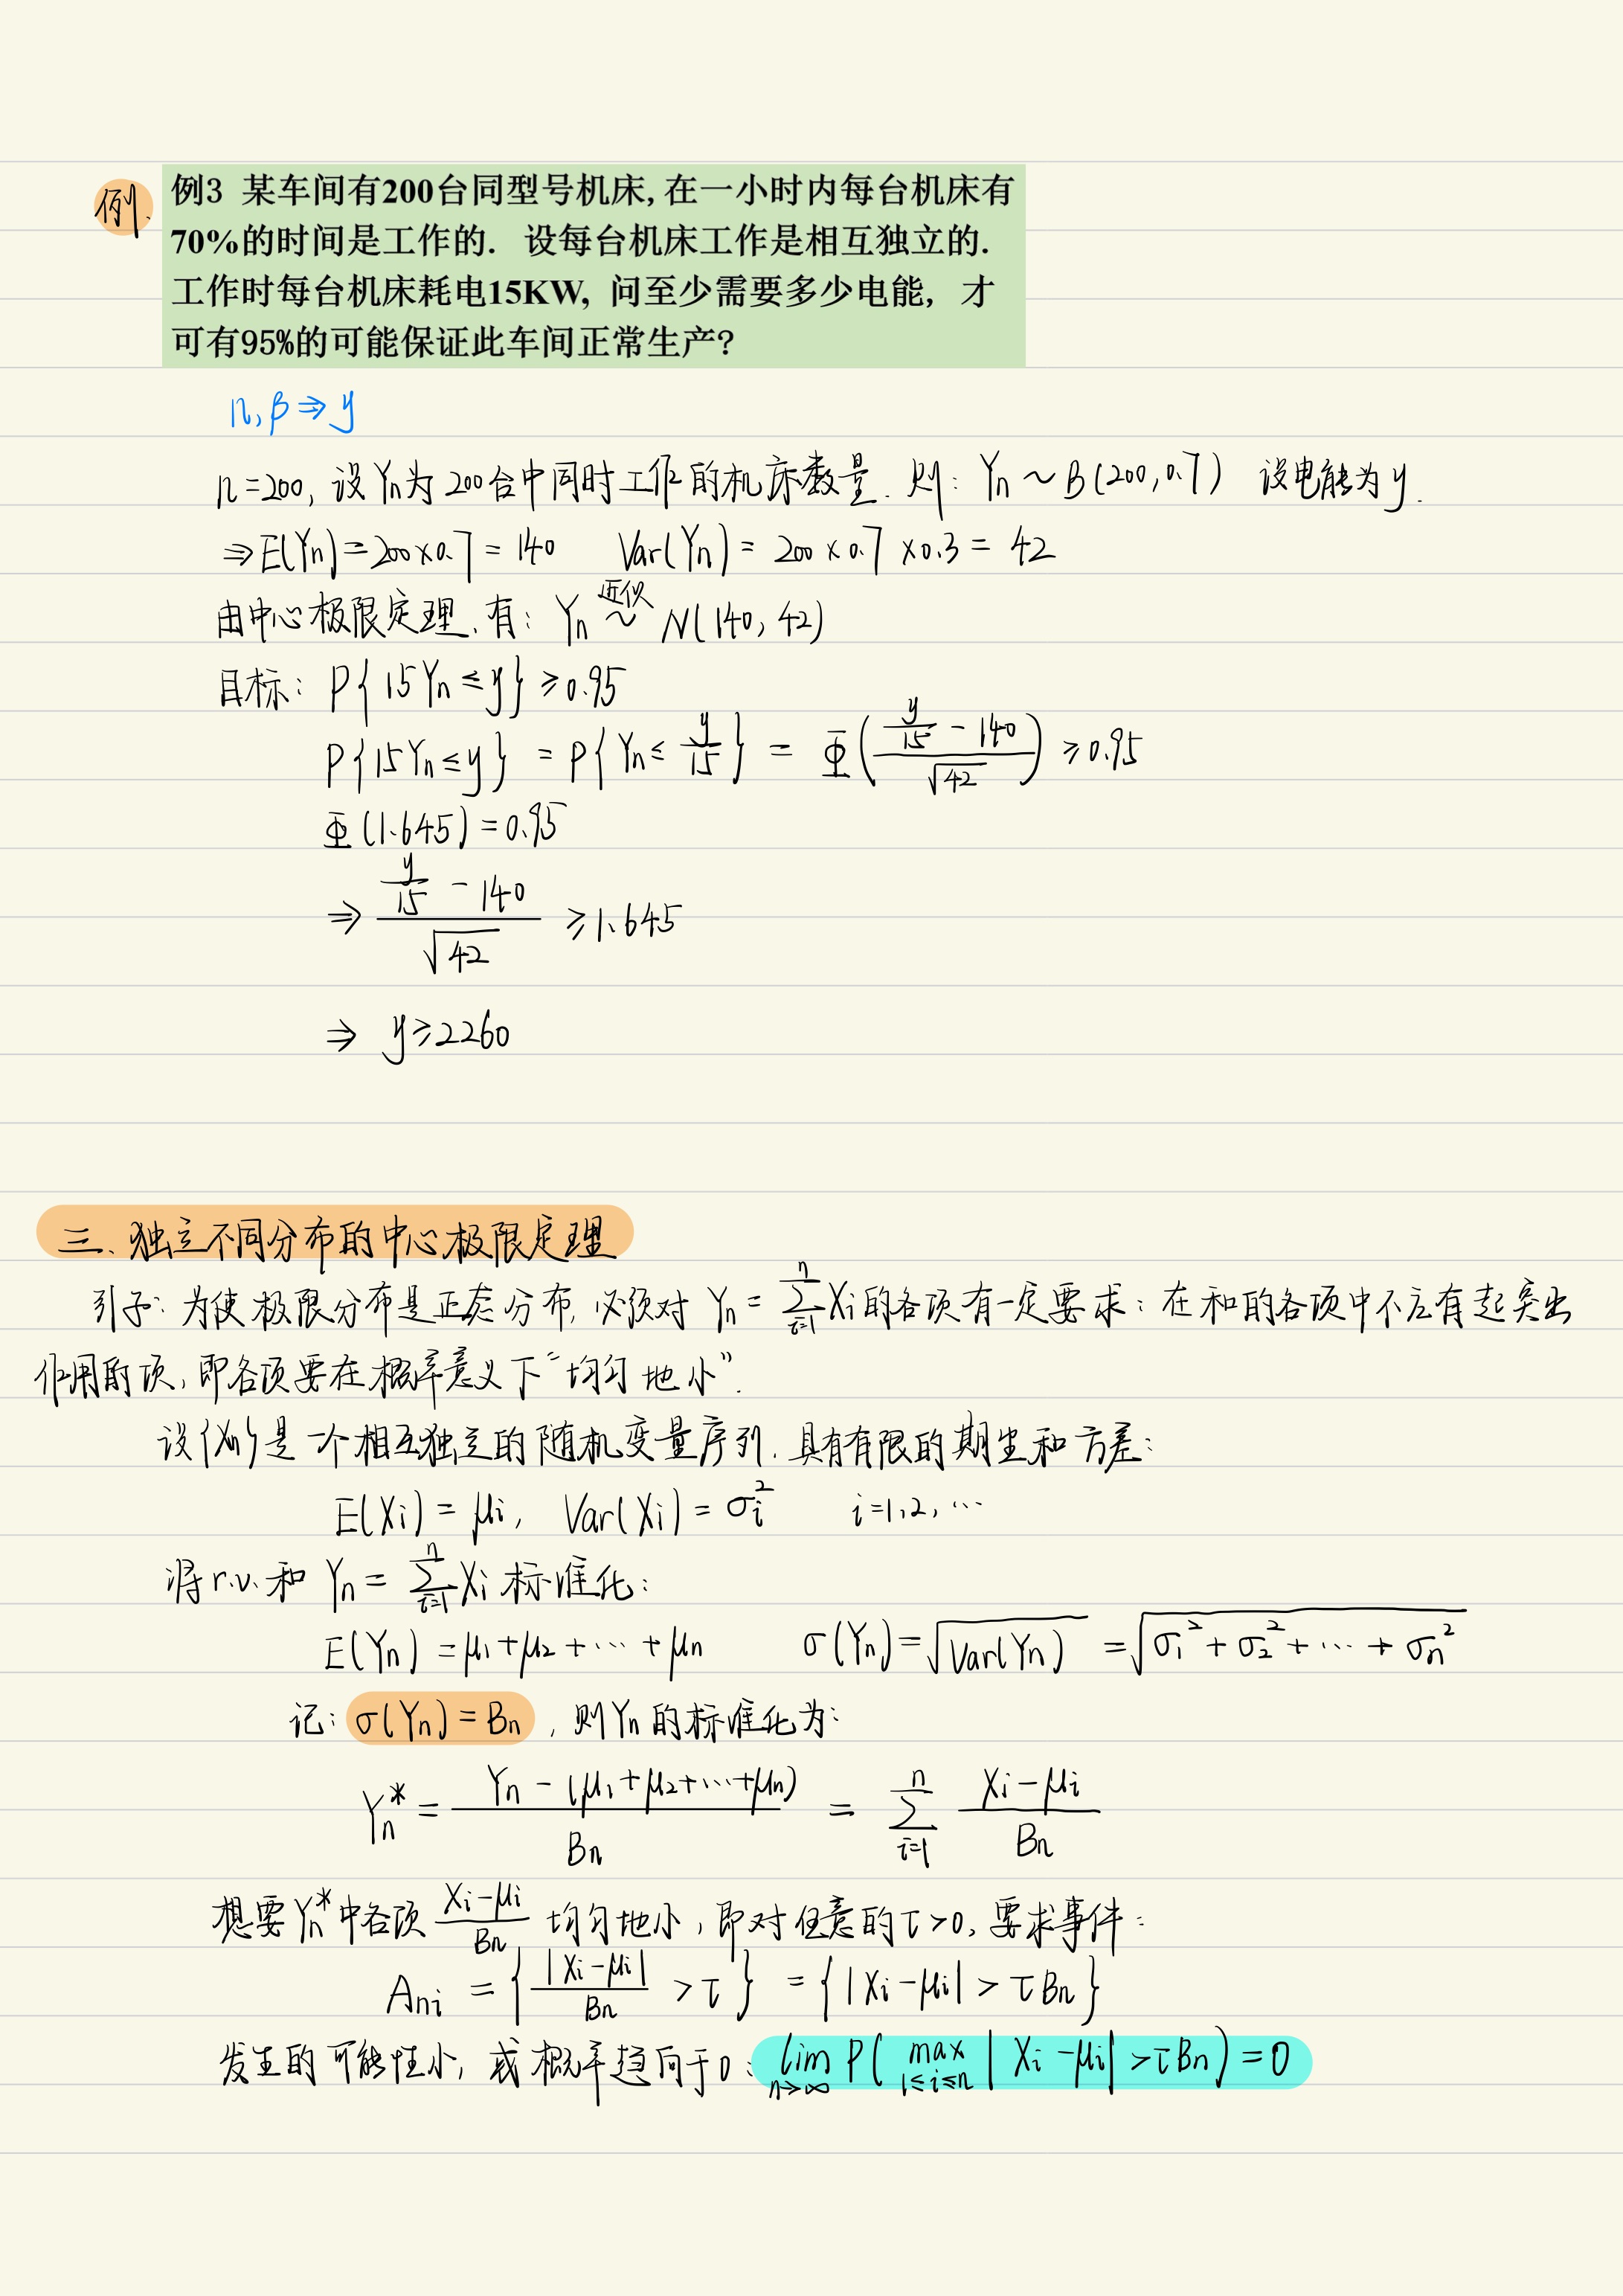 例. 例3 某车间有200台同型号机床, 在一小时内每台机床有
70%的时间是工作的. 设每台机床工作是相互独立的.
工作时每台机床耗电15KW, 问至少需要多少电能, 才
可有95%的可能保证此车间正常生产?
n, β ⇒ y
n=200, 设Yn为200台中同时工作的机床数量. 则: Yn ~ B(200, 0.7) 设电能为y.
⇒ E(Yn) = 200×0.7 = 140 Var(Yn) = 200×0.7×0.3 = 42
由中心极限定理, 有: Yn ~(近似) N(140, 42)
目标: P{15Yn ≤ y} ≥ 0.95
P{15Yn ≤ y} = P{Yn ≤ y/15} = Φ((y/15 - 140)/√42) ≥ 0.95
Φ(1.645) = 0.95
⇒ (y/15 - 140)/√42 ≥ 1.645
⇒ y ≥ 2260
三、独立不同分布的中心极限定理
引子: 为使极限分布是正态分布, 必须对 Yn = ∑_{i=1}^{n} Xi 的各项有一定要求: 在和的各项中不应有起突出
作用的项, 即各项要在概率意义下“均匀地小”.
设{Xn}是一个相互独立的随机变量序列. 具有有限的期望和方差:
E(Xi) = μi, Var(Xi) = σi² i=1,2,⋯
将r.v.和 Yn = ∑_{i=1}^{n} Xi 标准化:
E(Yn) = μ1+μ2+⋯+μn σ(Yn) = √Var(Yn) = √(σ1²+σ2²+⋯+σn²)
记: σ(Yn) = Bn, 则Yn的标准化为:
Yn* = (Yn - (μ1+μ2+⋯+μn))/Bn = ∑_{i=1}^{n} (Xi-μi)/Bn
想要Yn*中各项 (Xi-μi)/Bn 均匀地小, 即对任意的τ>0, 要求事件:
Ani = {|Xi-μi|/Bn > τ} = {|Xi-μi| > τBn}
发生的可能性小, 或概率趋向于0: lim_{n→∞} P(max_{1≤i≤n} |Xi-μi| > τBn) = 0